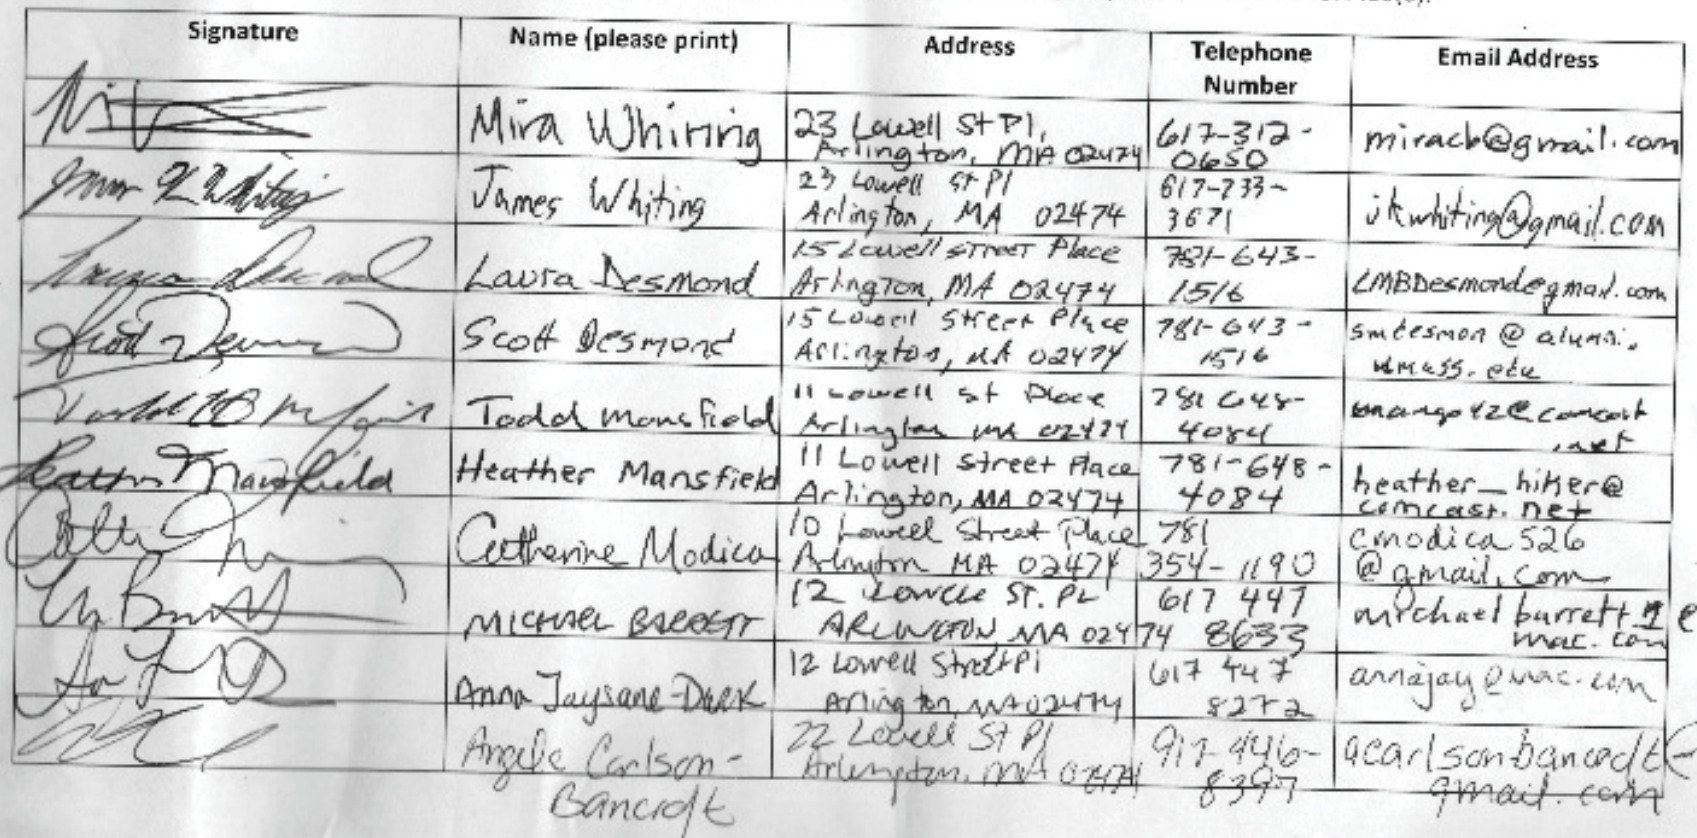 Signature Name (please print) Address Telephone Number Email Address
Mira Whiring 23 Lowell St Pl, Arlington, MA 02474 617-312-0650 miracb@gmail.com
James Whiting 23 Lowell St Pl Arlington, MA 02474 617-733-3671 jkwhiting@gmail.com
Laura Desmond 15 Lowell Street Place Arlington, MA 02474 781-643-1516 LMBDesmond@gmail.com
Scott Desmond 15 Lowell Street Place Arlington, MA 02474 781-643-1516 smdesmon@alumni.umass.edu
Todd Mansfield 11 Lowell St Place Arlington MA 02474 781 648-4084 mango42@comcast.net
Heather Mansfield Heather Mansfield 11 Lowell Street Place Arlington, MA 02474 781-648-4084 heather_hiker@comcast.net
Catherine Modica 10 Lowell Street Place Arlington MA 02474 781 354-1190 cmodica526@gmail.com
MICHAEL BARRETT 12 LOWELL ST. PL ARLINGTON, MA 02474 617 447 8633 michaelbarrett mac.com
Anna Jaysane-Darr 12 Lowell Street Pl Arlington, MA 02474 617 447 8272 annajay@mac.com
Angela Carlson-Bancroft 22 Lowell St Pl Arlington, MA 02474 917-446-8397 acarlsonbancroft@gmail.com